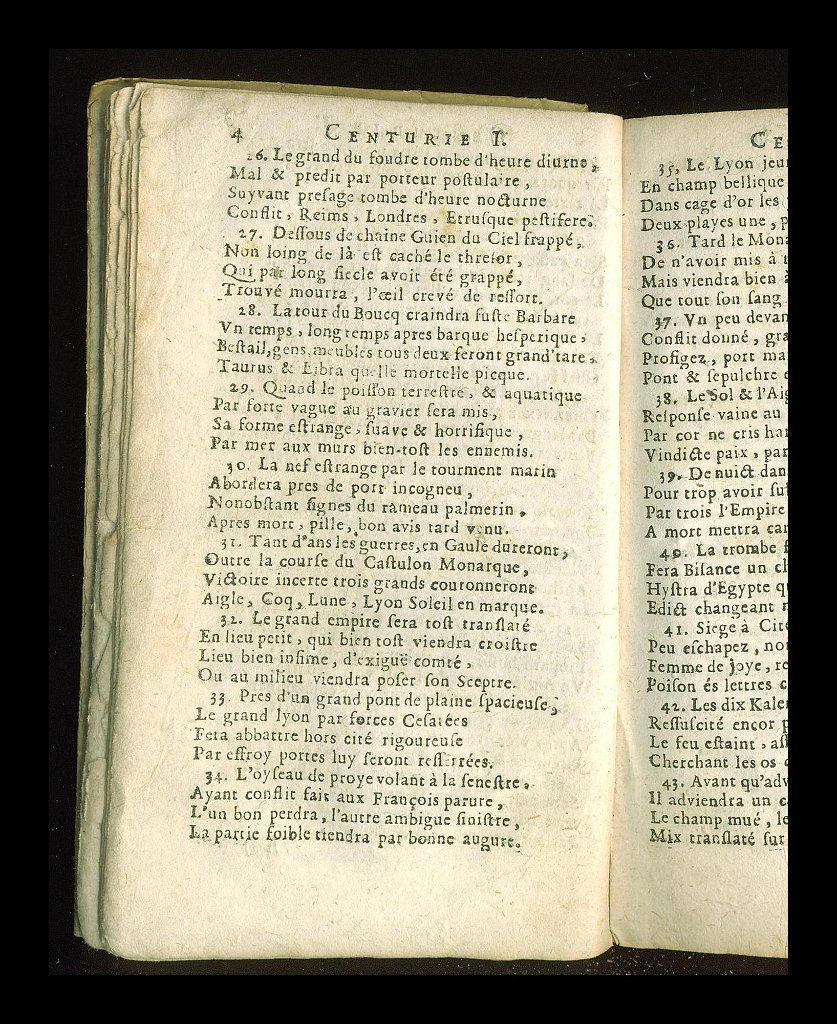 4 CENTURIE I.
26. Le grand du foudre tombe d'heure diurne,
Mal & predit par porteur postulaire,
Suyvant presage tombe d'heure nocturne
Conflit, Reims, Londres, Etrusque pestifere.
27. Dessous de chaine Guien du Ciel frappé,
Non loing de là est caché le thresor,
Qui par long siecle avoit été grappé,
Trouvé mourra, l'œil crevé de ressort.
28. La tour du Boucq craindra fuste Barbare
Vn temps, long temps apres barque hesperique,
Bestail, gens, meubles tous deux feront grand'tare,
Taurus & Libra quelle mortelle picque.
29. Quand le poisson terrestre, & aquatique
Par forte vague au gravier sera mis,
Sa forme estrange, suave & horrifique,
Par mer aux murs bien-tost les ennemis.
30. La nef estrange par le tourment marin
Abordera pres de port incogneu,
Nonobstant signes du rameau palmerin,
Apres mort, pille, bon avis tard venu.
31. Tant d'ans les guerres, en Gaule dureront,
Outre la course du Castulon Monarque,
Victoire incerte trois grands couronneront
Aigle, Coq, Lune, Lyon Soleil en marque.
32. Le grand empire sera tost translaté
En lieu petit, qui bien tost viendra croistre
Lieu bien infime, d'exiguë comté,
Ou au milieu viendra poser son Sceptre.
33. Pres d'un grand pont de plaine spacieuse,
Le grand lyon par forces Cesarées
Fera abbattre hors cité rigoureuse
Par effroy portes luy seront resserrées.
34. L'oyseau de proye volant à la senestre,
Ayant conflit fait aux François parure,
L'un bon perdra, l'autre ambigue sinistre,
La partie foible tiendra par bonne augure.
CE
35. Le Lyon jeu
En champ bellique
Dans cage d'or les
Deux playes une, p
36. Tard le Mona
De n'avoir mis à
Mais viendra bien
Que tout son sang
37. Vn peu devan
Conflit donné, gra
Profigez, port ma
Pont & sepulchre
38. Le Sol & l'Aig
Response vaine au
Par cor ne cris har
Vindicte paix, par
39. De nuict dan
Pour trop avoir su
Par trois l'Empire
A mort mettra car
40. La trombe f
Fera Bisance un ch
Hystra d'Egypte q
Edict changeant
41. Siege à Cit
Peu eschapez, no
Femme de joye, re
Poison és lettres c
42. Les dix Kale
Ressuscité encor p
Le feu estaint, as
Cherchant les os
43. Avant qu'adv
Il adviendra un c
Le champ mué, le
Mix translaté sur